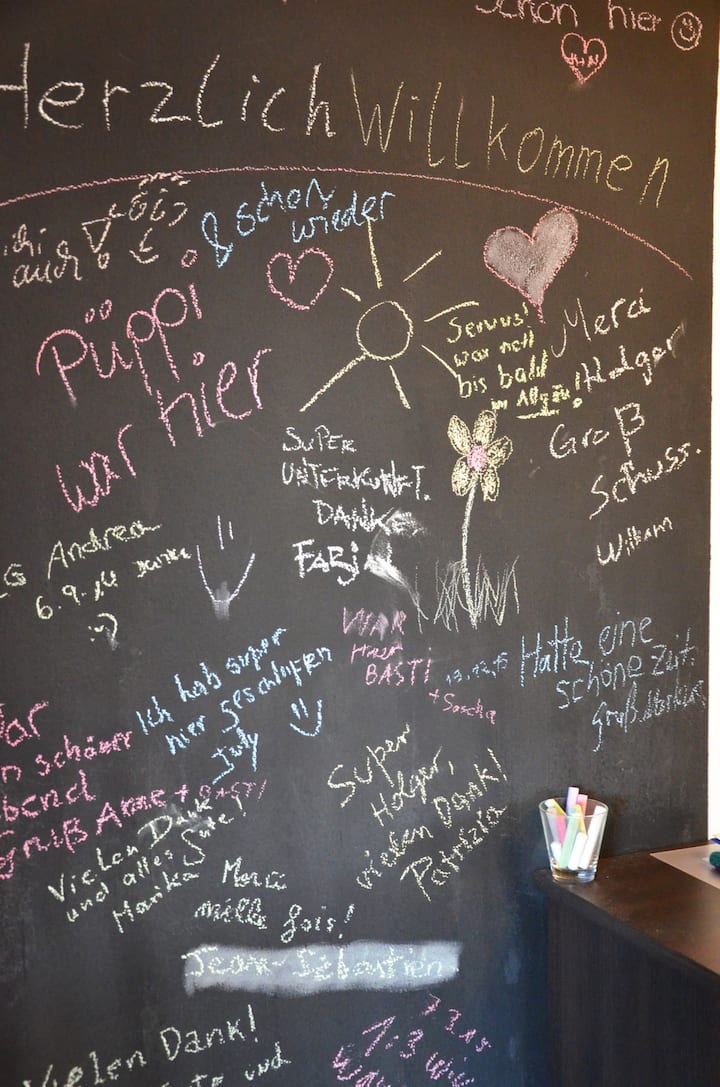 Schön hier
H+N
Herzlich Willkommen
auch
& schon
wieder
Püppi
war hier
Servus!
war nett
bis bald
im Allgäu!
Merci
Holger
Groß
Schuss.
William
SUPER
UNTERKUNFT.
DANKE
FABI
LG Andrea
6.9.14
:)
WAR
HIER
BASTI
+ Sascha
13.12.15
Hatte eine
schöne Zeit.
Gruß
Ich hab super
hier geschlafen
July
War
n schöner
bend
Gruß Anne + BASTI
Super
Holger,
vielen Dank!
Patrizia
Vielen Dank
und alles Gute!
Marika
Merci
mille fois!
Jean-Sébastien
Vielen Dank!
und
1-3